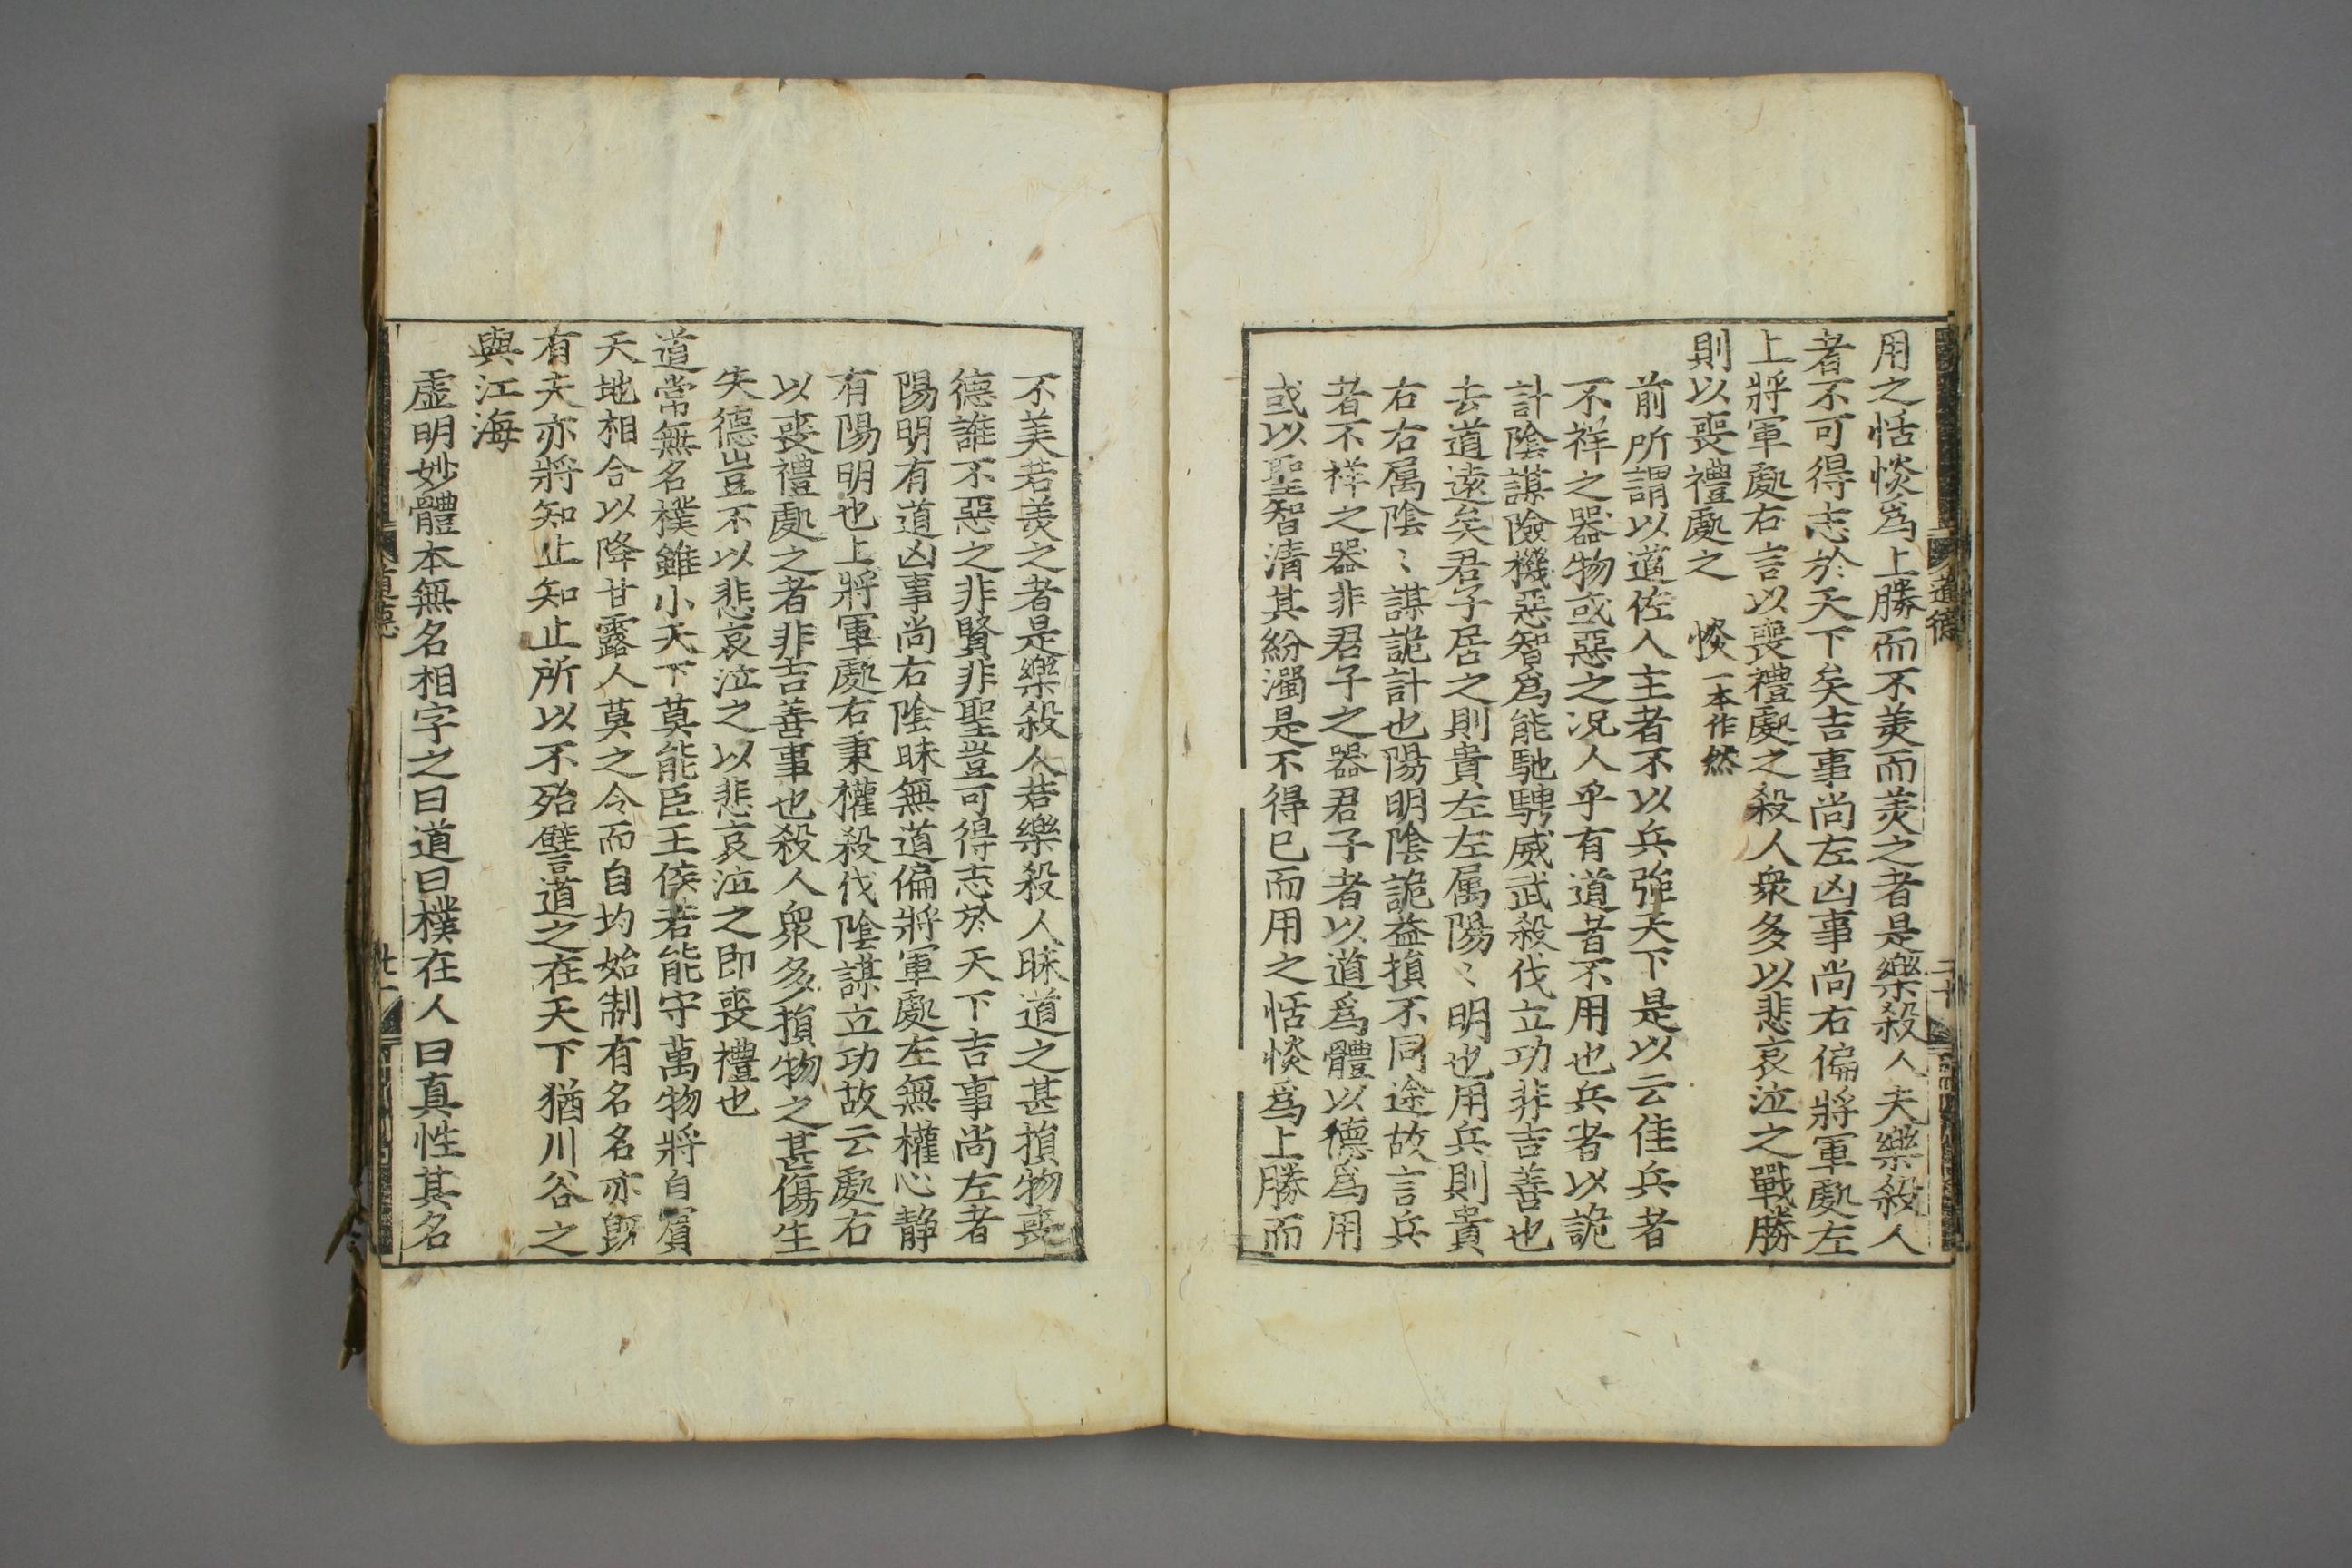 用之恬惔爲上勝而不美而美之者是樂殺人夫樂殺人
者不可得志於天下矣吉事尚左凶事尚右偏將軍處左
上將軍處右言以喪禮處之殺人衆多以悲哀泣之戰勝
則以喪禮處之 惔一本作然
前所謂以道佐人主者不以兵强天下是以云佳兵者
不祥之器物或惡之况人乎有道者不用也兵者以詭
計陰謀險機惡智爲能馳騁威武殺伐立功非吉善也
去道遠矣君子居之則貴左左属陽〻明也用兵則貴
右右属陰〻謀詭計也陽明陰詭益損不同途故言兵
者不祥之器非君子之器君子者以道爲體以德爲用
或以聖智清其紛濁是不得已而用之恬惔爲上勝而
道德
二十
不美若美之者是樂殺人若樂殺人昧道之甚損物喪
德誰不惡之非賢非聖豈可得志於天下吉事尚左者
陽明有道凶事尚右陰昧無道偏將軍處左無權心静
有陽明也上將軍處右秉權殺伐陰謀立功故云處右
以喪禮處之者非吉善事也殺人衆多損物之甚傷生
失德豈不以悲哀泣之以悲哀泣之即喪禮也
道常無名樸雖小天下莫能臣王侯若能守萬物將自賓
天地相合以降甘露人莫之令而自均始制有名名亦既
有夫亦將知止知止所以不殆譬道之在天下猶川谷之
與江海
虛明妙體本無名相字之曰道曰樸在人曰真性其名
道德
廿一